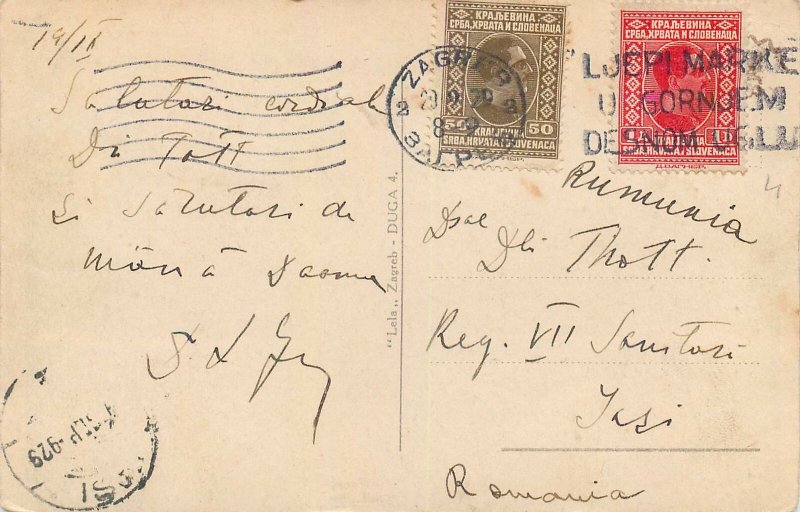 19/IX
Salutari cordiale
Dli Tott
și sărutări de
mână Doamnei
"Lela„ Zagreb - DUGA 4.
КРАЉЕВИНА
СРБА, ХРВАТА И СЛОВЕНАЦА
50 KRALJEVINA 50
SRBA, HRVATA I SLOVENACA
КРАЉЕВИНА
СРБА, ХРВАТА И СЛОВЕНАЦА
1D KRALJEVINA 1D
SRBA, HRVATA I SLOVENACA
ZAGREB
2 2
ЗАГРЕБ
LJEPI MARKE
U GORNJEM
DESNOM UGLU
Rumunia
Dsale
Dli Thott.
Reg. VII Sanitar
Iași
Romania
SEP 929